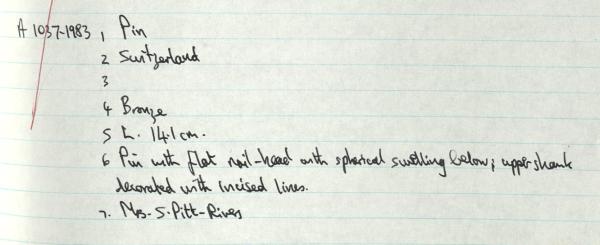 A 1037-1983 1 Pin
2 Switzerland
3
4 Bronze
5 L. 14.1cm.
6 Pin with flat nail-head with spherical swelling below; upper shank
decorated with incised lines.
7. Mrs. S. Pitt-Rivers